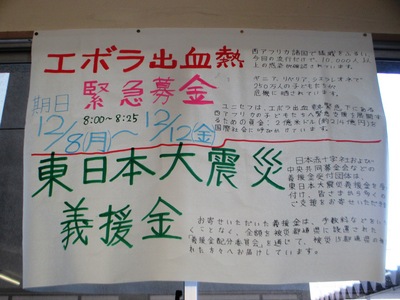 エボラ出血熱
緊急募金
期日
12/8(月)～
8:00～8:25
12/12(金)
西アフリカ諸国で
今回の流行だけで、10,000人以
上の感染が確認されています。
ギニア、リベリア、シエラレオネで
250万人の子どもたちが
危機に晒されています。
ユニセフは、エボラ出血熱緊急下にある
西アフリカの子どもたちの
ための資金2億米ドル(約214億円)を
国際社会に呼びかけています。
東日本大震災
義援金
日本赤十字社および
中央共同募金会などの
義援金受付団体は、
東日本大震災義援金を受け
付け、皆さまから多くの
ご支援をお寄せいただいて
お寄せいただいた義援金は、手数料などをいただ
くことなく、全額を被災都道県に設置された
「義援金配分委員会」を通じて、被災都道県の
れた方々へお届けしています。